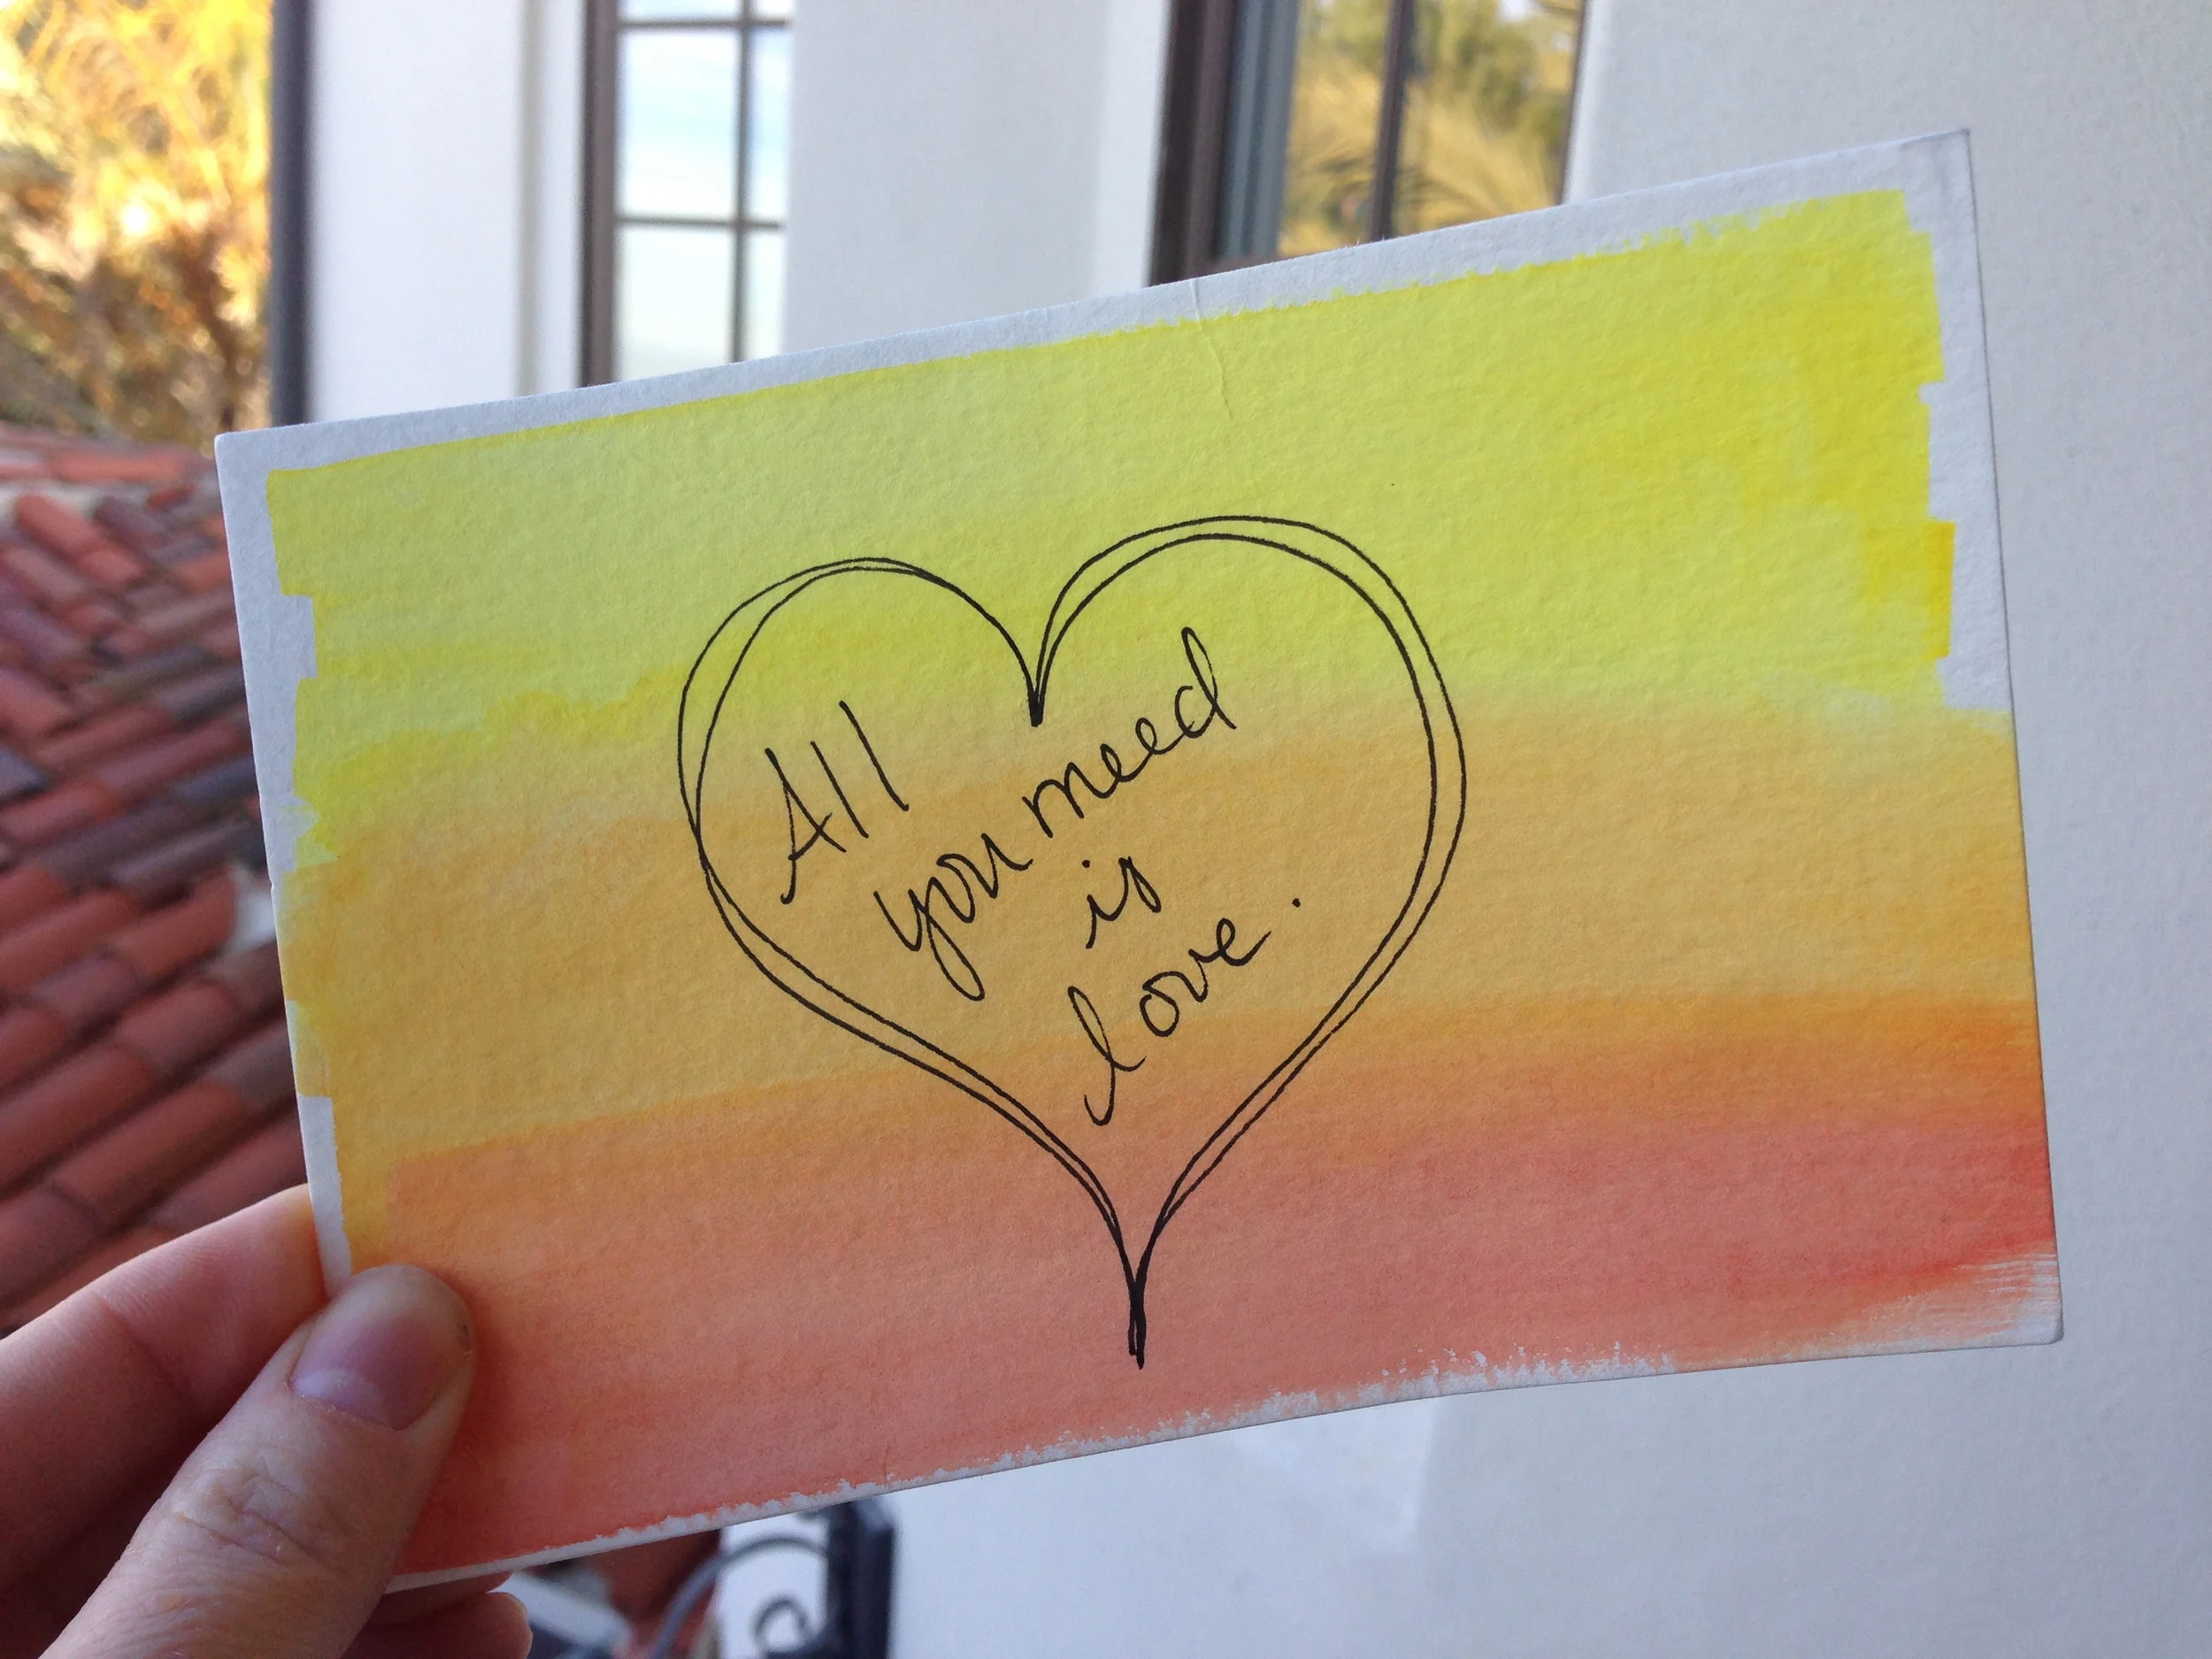 All
you need
is
love.